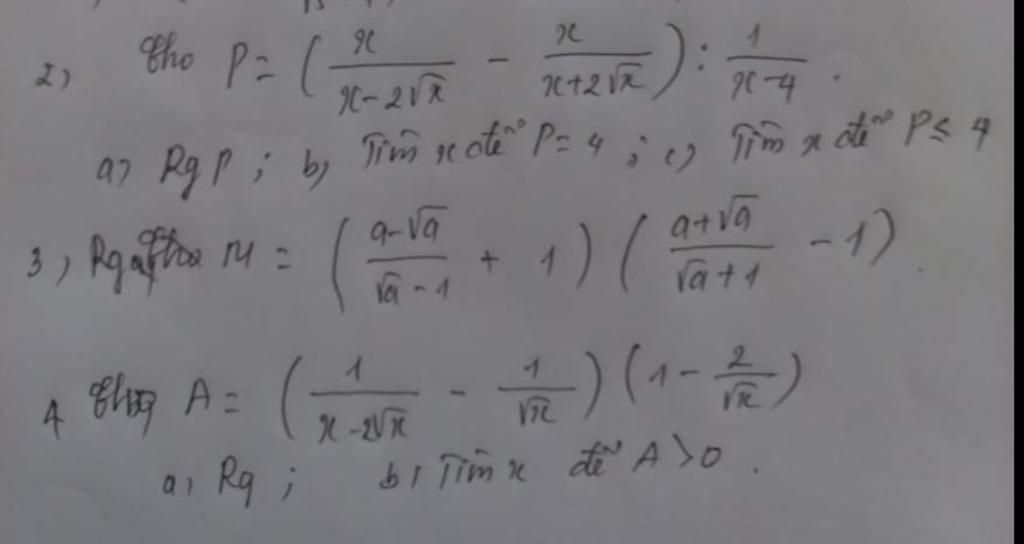 2) Cho P = ( x/(x-2√x) - x/(x+2√x) ) : 1/(x-4) .
a) Rg P ; b) Tìm x để P = 4 ; c) Tìm x để P ≤ 4
3) Rg M = ( (a-√a)/(√a-1) + 1 ) ( (a+√a)/(√a+1) - 1 )
4 A = ( 1/(x-2√x) - 1/√x ) ( 1 - 2/√x )
a) Rg ; b) Tìm x để A > 0 .